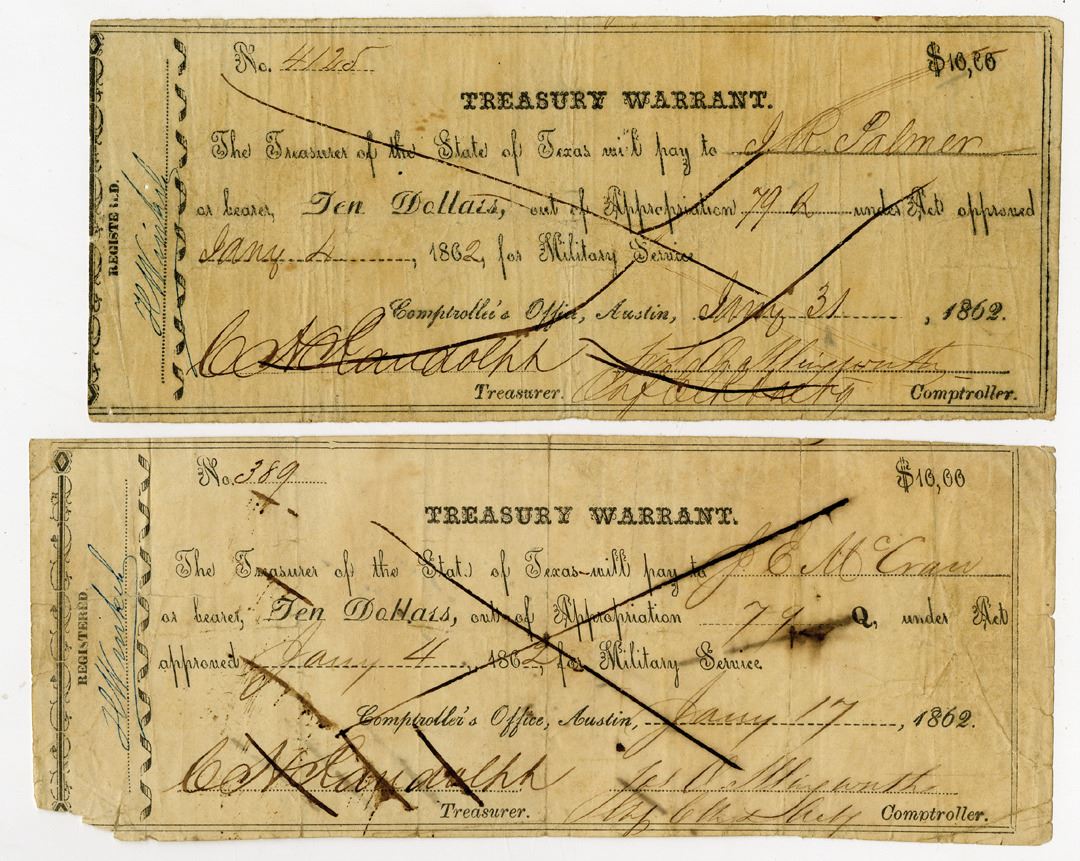 No. 4125
$10,00
TREASURY WARRANT.
The Treasurer of the State of Texas will pay to J. R. Palmer
or bearer, Ten Dollars, out of Appropriation 79 Q under Act approved
Jany 4, 1862, for Military Service
Comptroller's Office, Austin, Jany 31, 1862.
C H Randolph
Treasurer.
Comptroller.
REGISTERED.
No. 389
$10,00
TREASURY WARRANT.
The Treasurer of the State of Texas will pay to J E McCraw
or bearer, Ten Dollars, out of Appropriation 79 Q, under Act
approved Jany 4, 1862, for Military Service
Comptroller's Office, Austin, Jany 17, 1862.
C H Randolph
Treasurer.
Comptroller.
REGISTERED